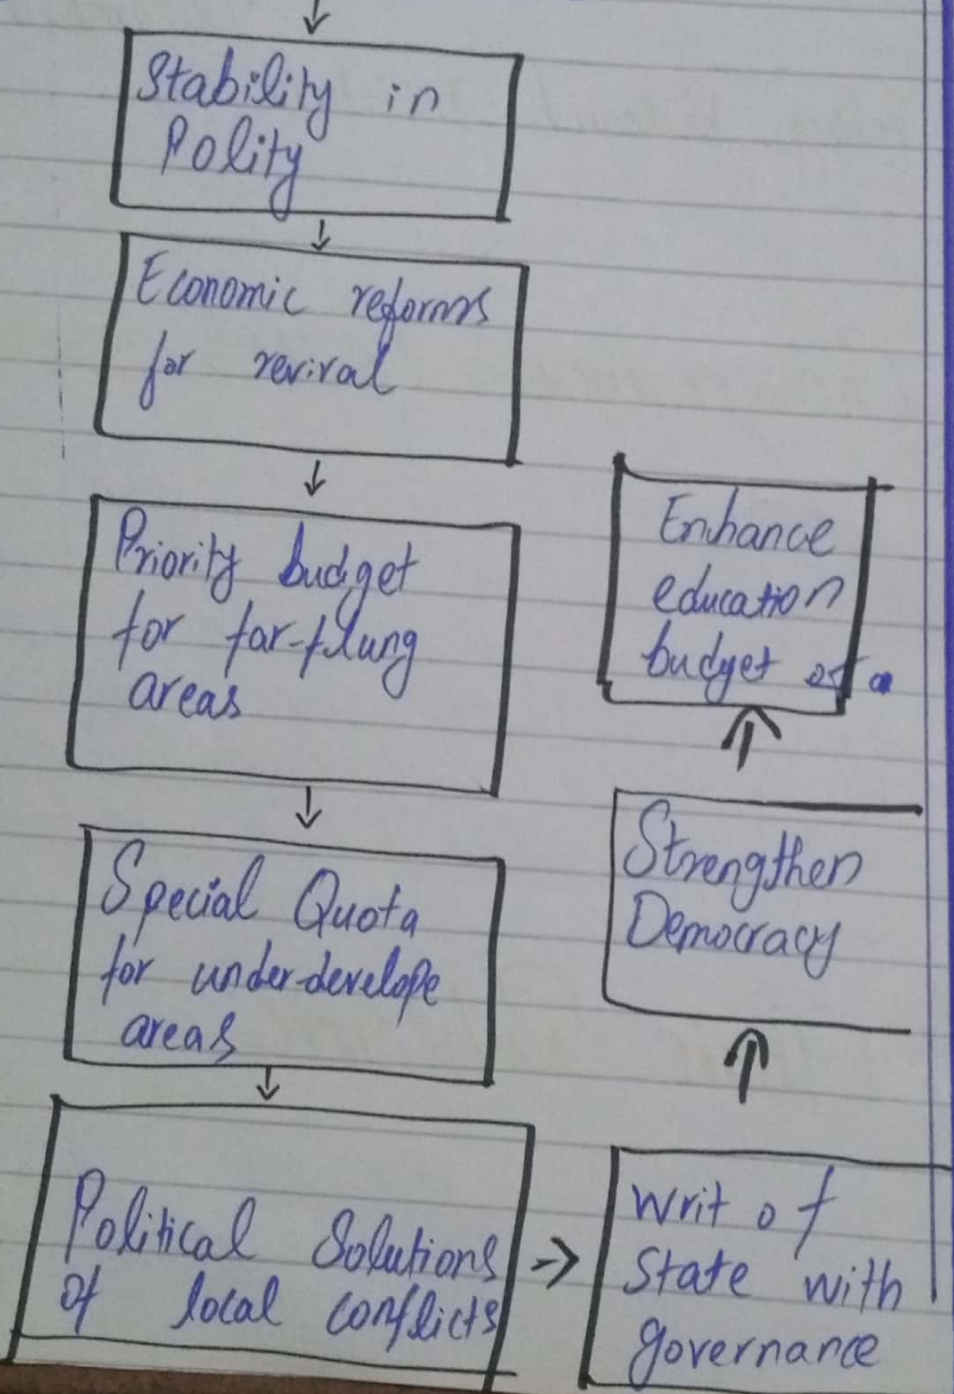 Stability in
Polity
Economic reforms
for revival
Priority budget
for far-flung
areas
Special Quota
for under-develope
areas
Political Solutions
of local conflicts
Writ of
State with
governance
Strengthen
Democracy
Enhance
education
budget